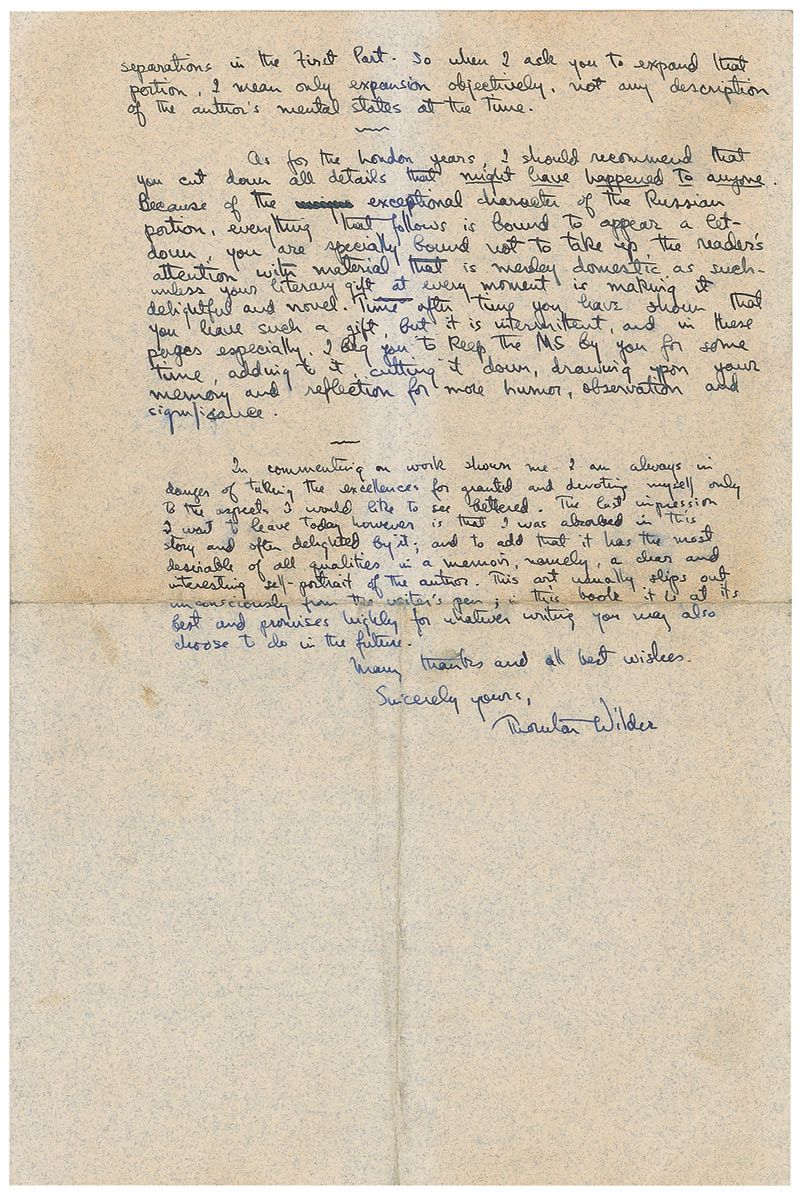 separations in the First Part. So when I ask you to expand that
portion, I mean only expansion objectively, not any description
of the author's mental states at the time.
As for the London years, I should recommend that
you cut down all details that might have happened to anyone.
Because of the exceptional character of the Russian
portion, everything that follows is bound to appear a let-
down, you are specially bound not to take up the reader's
attention with material that is merley domestic, as such–
unless your literary gift at every moment is making it
delightful and novel. Time after time you have shown that
you have such a gift, but it is intermittent, and in these
pages especially. I beg you to keep the MS by you for some
time, adding to it, cutting it down, drawing upon your
memory and reflection for more humor, observation and
significance.
In commenting on work shown me I am always in
danger of taking the excellences for granted and devoting myself only
to the aspects I would like to see bettered. The last impression
I want to leave today however is that I was absorbed in this
story and often delighted by it; and to add that it has the most
desirable of all qualities in a memoir, namely, a clear and
interesting self-portrait of the author. This art usually slips out
unconsciously from the writer's pen; in this book it is at its
best and promises highly for whatever writing you may also
choose to do in the future.
Many thanks and all best wishes.
Sincerely yours,
Thornton Wilder